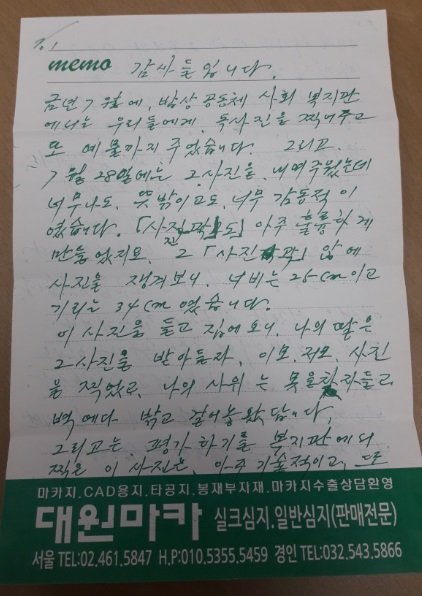 memo 감사들입니다.
금년 7월에, 밥상공동체 사회 복지관
에서는 우리들에게, 독사진을 찍어주고
또 예물까지 주었습니다. 그리고.
7월 28일에는 그사진을, 내여주웠는데
너무나도, 뜻밖이고도, 너무 감동적이
였습니다. 「사진 도 아주 훌륭하게
만들었지요. 그 「사진 곽」 앞에
사진을 너비는 25cm이고
기리는 34cm 였습니다.
이 사진을 들고 집에오니, 나의 딸은
그사진을 받아들자, 사진
을 찍었고, 나의 사위는 들고
벽에다 밖고 걸어놓았답니다,
그리고는 평가하기를 복지관에서
찍은 이 사진은, 아주 기술적이고, 또
마카지.CAD용지.타공지.봉재부자재.마카지수출상담환영
대원마카 실크심지.일반심지(판매전문)
서울 TEL:02.461.5847 H.P:010.5355.5459 경인 TEL:032.543.5866